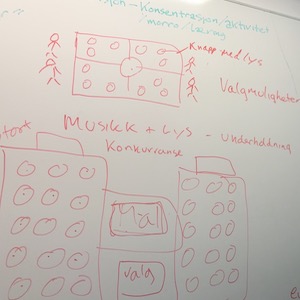 Konsentrasjon/aktivitet
/moro/læring
Knapp med lys
Valgmuligheter
Musikk + Lys - Underholdning
Konkurranse
Mål
valg